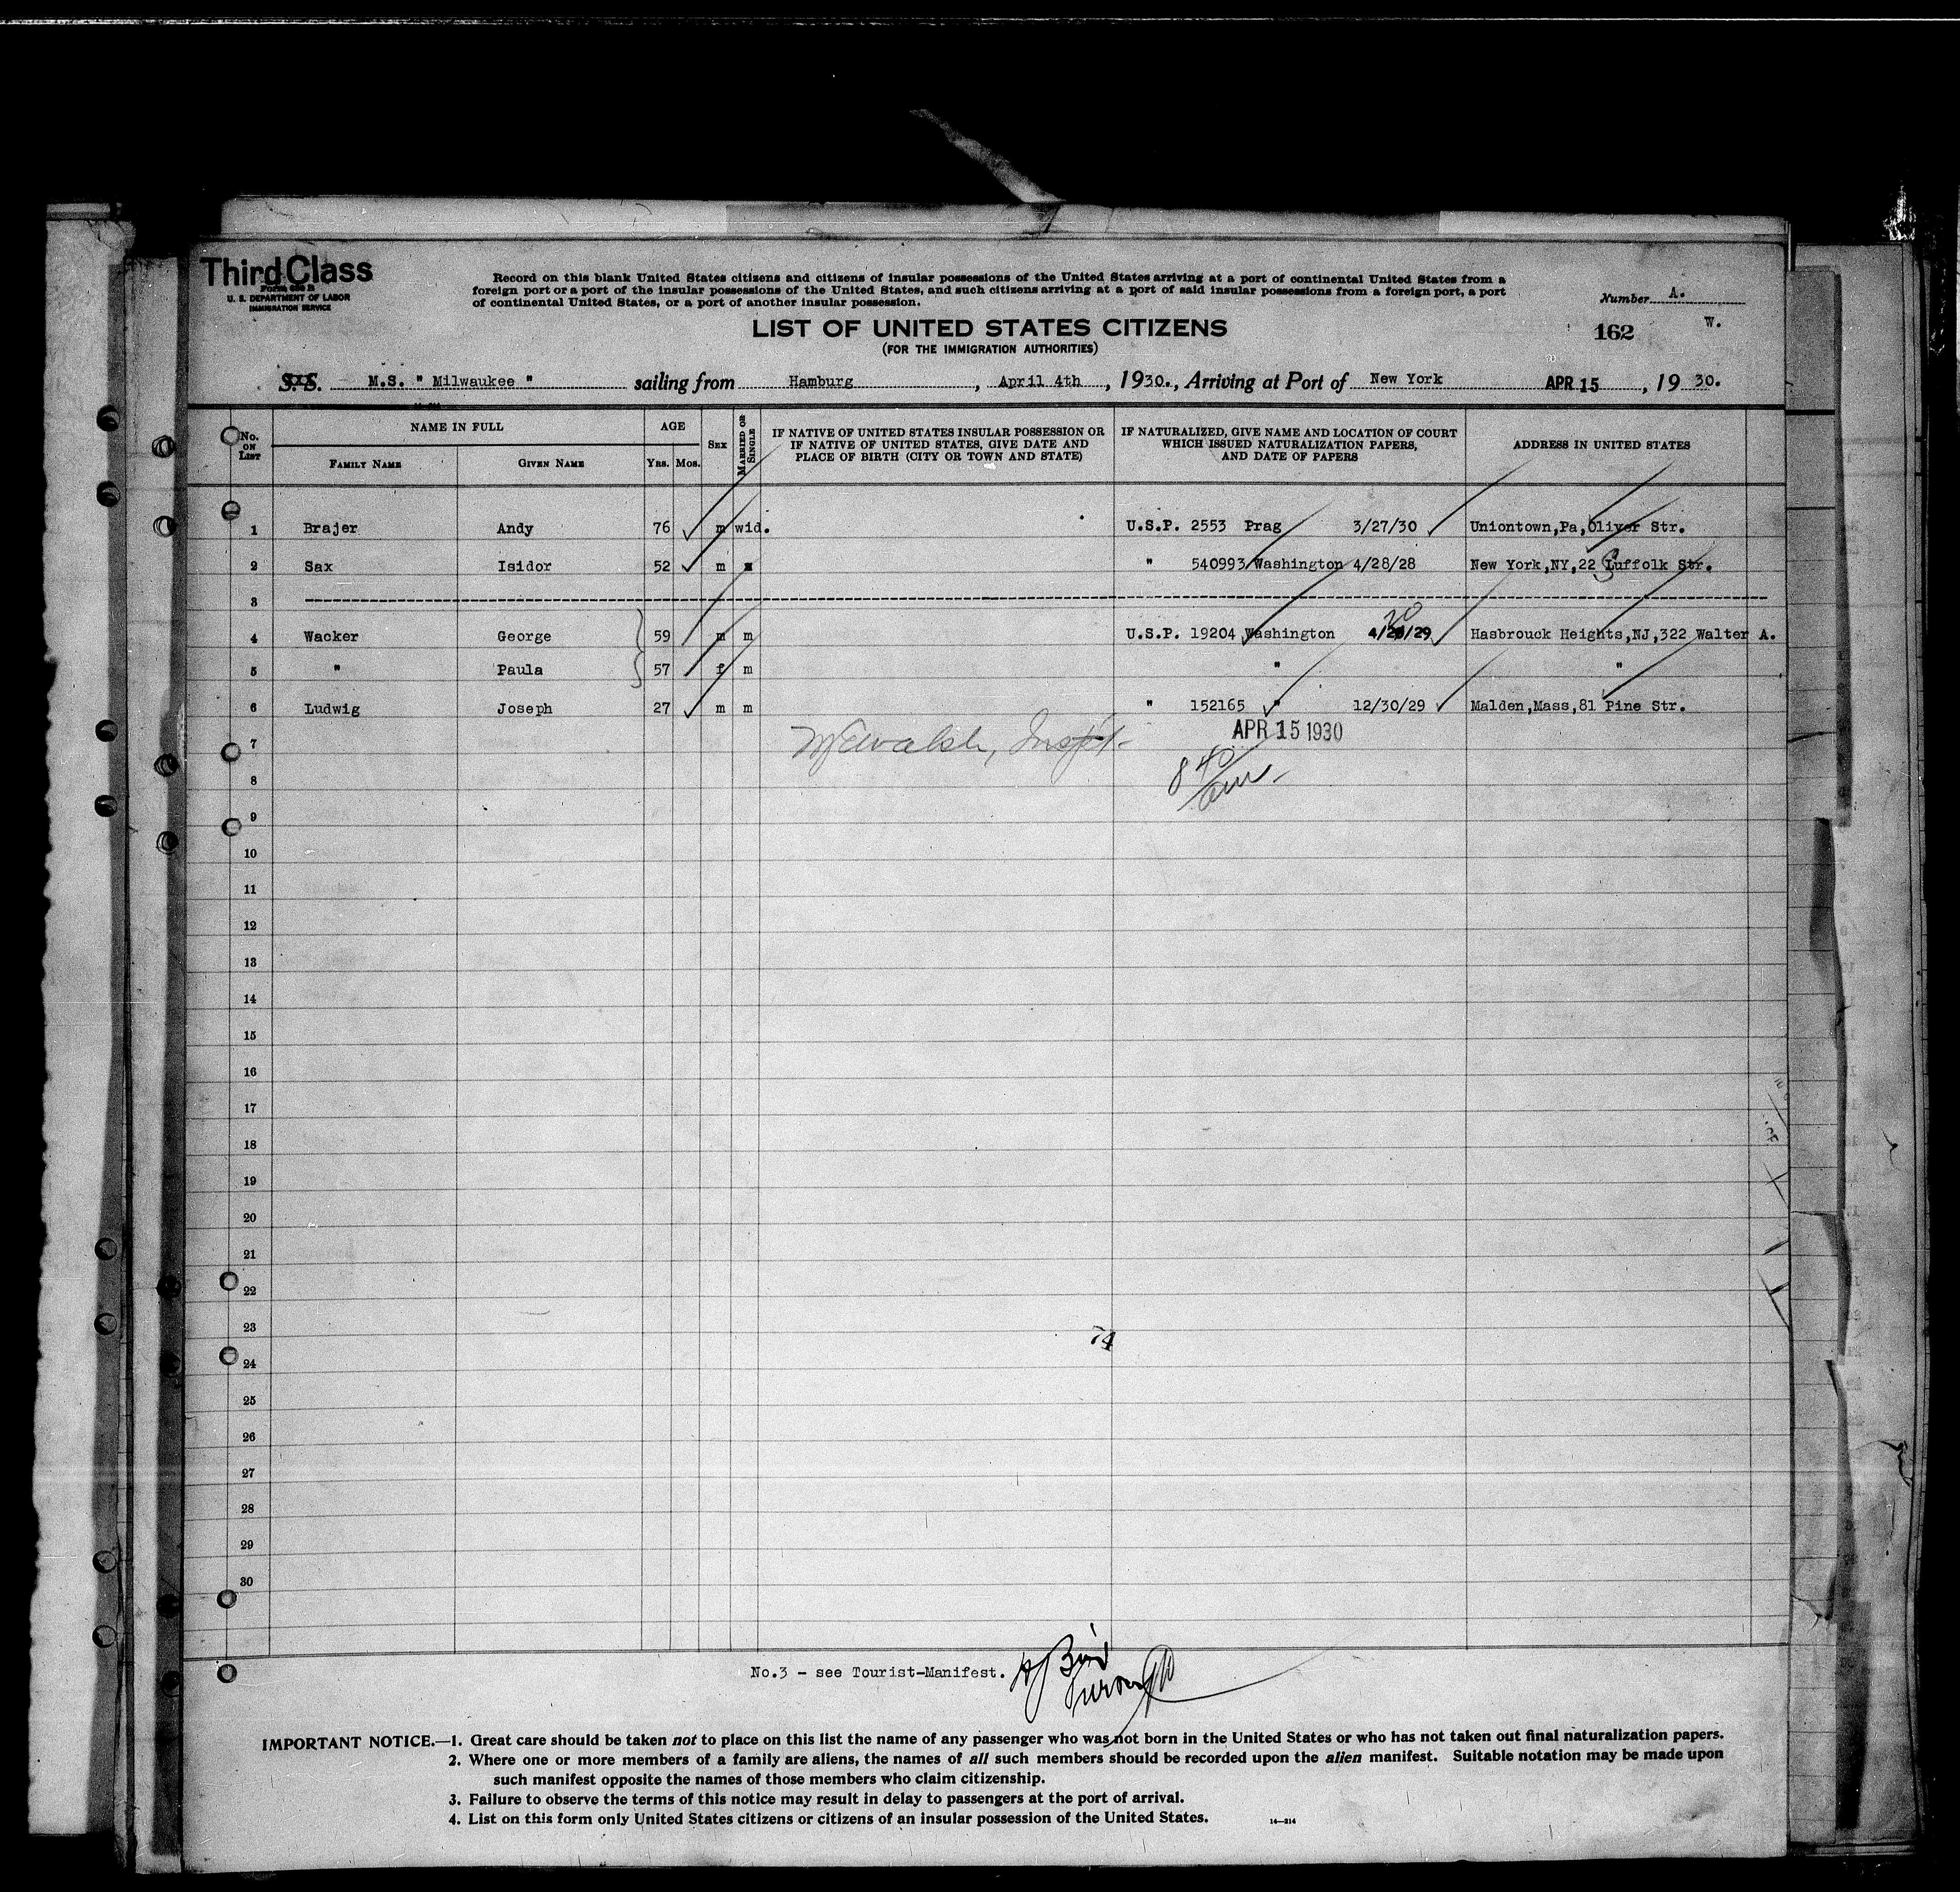 Third Class
Form 630 B
U. S. DEPARTMENT OF LABOR
IMMIGRATION SERVICE
Record on this blank United States citizens and citizens of insular possessions of the United States arriving at a port of continental United States from a
foreign port or a port of the insular possessions of the United States, and such citizens arriving at a port of said insular possessions from a foreign port, a port
of continental United States, or a port of another insular possession.
Number A.
162 W.
LIST OF UNITED STATES CITIZENS
(FOR THE IMMIGRATION AUTHORITIES)
S.S. M.S. " Milwaukee " sailing from Hamburg, April 4th, 1930., Arriving at Port of New York APR 15, 19 30.
No. ON LIST NAME IN FULL AGE SEX MARRIED OR SINGLE IF NATIVE OF UNITED STATES INSULAR POSSESSION OR IF NATIVE OF UNITED STATES, GIVE DATE AND PLACE OF BIRTH (CITY OR TOWN AND STATE) IF NATURALIZED, GIVE NAME AND LOCATION OF COURT WHICH ISSUED NATURALIZATION PAPERS, AND DATE OF PAPERS ADDRESS IN UNITED STATES
FAMILY NAME GIVEN NAME YRS. MOS.
1 Brajer Andy 76 m wid. U.S.P. 2553 Prag 3/27/30 Uniontown,Pa,Oliver Str.
2 Sax Isidor 52 m " 540993 Washington 4/28/28 New York,NY,22 Suffolk Str.
3
4 Wacker George 59 m m U.S.P. 19204 Washington 4/20/29 Hasbrouck Heights,NJ,322 Walter A.
5 " Paula 57 f m " "
6 Ludwig Joseph 27 m m " 152165 " 12/30/29 Malden,Mass,81 Pine Str.
7 Inspt. APR 15 1930
8 8 40 am
9
10
11
12
13
14
15
16
17
18
19
20
21
22
23 74
24
25
26
27
28
29
30
No.3 - see Tourist-Manifest.
IMPORTANT NOTICE.—1. Great care should be taken not to place on this list the name of any passenger who was not born in the United States or who has not taken out final naturalization papers.
2. Where one or more members of a family are aliens, the names of all such members should be recorded upon the alien manifest. Suitable notation may be made upon
such manifest opposite the names of those members who claim citizenship.
3. Failure to observe the terms of this notice may result in delay to passengers at the port of arrival.
4. List on this form only United States citizens or citizens of an insular possession of the United States. 14—214